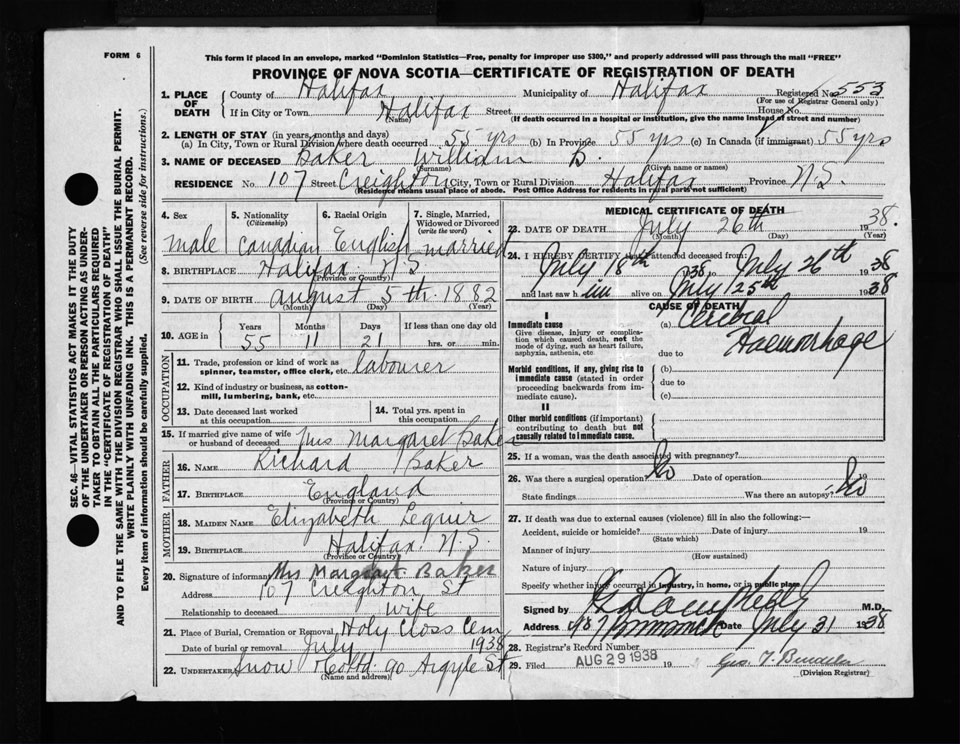 FORM 6
This form if placed in an envelope, marked "Dominion Statistics—Free, penalty for improper use $300," and properly addressed will pass through the mail "FREE"
PROVINCE OF NOVA SCOTIA—CERTIFICATE OF REGISTRATION OF DEATH
SEC. 46—VITAL STATISTICS ACT MAKES IT THE DUTY
OF THE UNDERTAKER OR PERSON ACTING AS UNDER-
TAKER TO OBTAIN ALL THE PARTICULARS REQUIRED
IN THE "CERTIFICATE OF REGISTRATION OF DEATH"
AND TO FILE THE SAME WITH THE DIVISION REGISTRAR WHO SHALL ISSUE THE BURIAL PERMIT.
WRITE PLAINLY WITH UNFADING INK. THIS IS A PERMANENT RECORD.
Every item of information should be carefully supplied. (See reverse side for instructions.)
1. PLACE OF DEATH County of Halifax Municipality of Halifax Registered No. 553
(For use of Registrar General only)
If in City or Town Halifax Street House No.
(Name) (If death occurred in a hospital or institution, give the name instead of street and number)
2. LENGTH OF STAY (in years, months and days)
(a) In City, Town or Rural Division where death occurred 55 yrs (b) In Province 55 yrs (c) In Canada (if immigrant) 55 yrs
3. NAME OF DECEASED Baker William D.
(Surname) (Given name or names)
RESIDENCE No. 107 Street Creighton City, Town or Rural Division Halifax Province N.S.
(Residence means usual place of abode. Post Office Address for residents in rural parts not sufficient)
4. Sex 5. Nationality (Citizenship) 6. Racial Origin 7. Single, Married, Widowed or Divorced (write the word)
male Canadian English married
8. BIRTHPLACE Halifax N S
(Province or Country)
9. DATE OF BIRTH August 5th 1882
(Month) (Day) (Year)
10. AGE in Years Months Days If less than one day
55 11 21 hrs. or min.
OCCUPATION
11. Trade, profession or kind of work as spinner, teamster, office clerk, etc. labourer
12. Kind of industry or business, as cotton-mill, lumbering, bank, etc.
13. Date deceased last worked at this occupation 14. Total yrs. spent in this occupation
15. If married give name of wife or husband of deceased Mrs Margaret Baker
FATHER
16. NAME Richard Baker
17. BIRTHPLACE England
(Province or Country)
MOTHER
18. MAIDEN NAME Elizabeth
19. BIRTHPLACE Halifax N.S.
(Province or Country)
20. Signature of informant Mrs Margaret Baker
Address 107 Creighton St
Relationship to deceased wife
21. Place of Burial, Cremation or Removal Holy Cross Cem
Date of burial or removal July 1938
22. UNDERTAKER Snow & Co Ltd 90 Argyle St
(Name and address)
MEDICAL CERTIFICATE OF DEATH
23. DATE OF DEATH July 26th 1938.
(Month) (Day) (Year)
24. I HEREBY CERTIFY that I attended deceased from
July 18th 1938 to July 26th 1938
and last saw him alive on July 25th 1938
CAUSE OF DEATH
I
Immediate cause
Give disease, injury or complication which caused death, not the mode of dying, such as heart failure, asphyxia, asthenia, etc
(a) Cerebral Haemorrhage
due to
Morbid conditions, if any, giving rise to immediate cause (stated in order proceeding backwards from immediate cause).
(b)
due to
(c)
II
Other morbid conditions (if important) contributing to death but not causally related to immediate cause.
25. If a woman, was the death associated with pregnancy?
26. Was there a surgical operation? No Date of operation 19
State findings Was there an autopsy? No
27. If death was due to external causes (violence) fill in also the following:—
Accident, suicide or homicide? Date of injury 19
(State which)
Manner of injury
(How sustained)
Nature of injury
Specify whether injury occurred in industry, in home, or in public place
Signed by M.D.
Address Date July 31 1938
28. Registrar's Record Number
29. Filed AUG 29 1938 19
(Division Registrar)